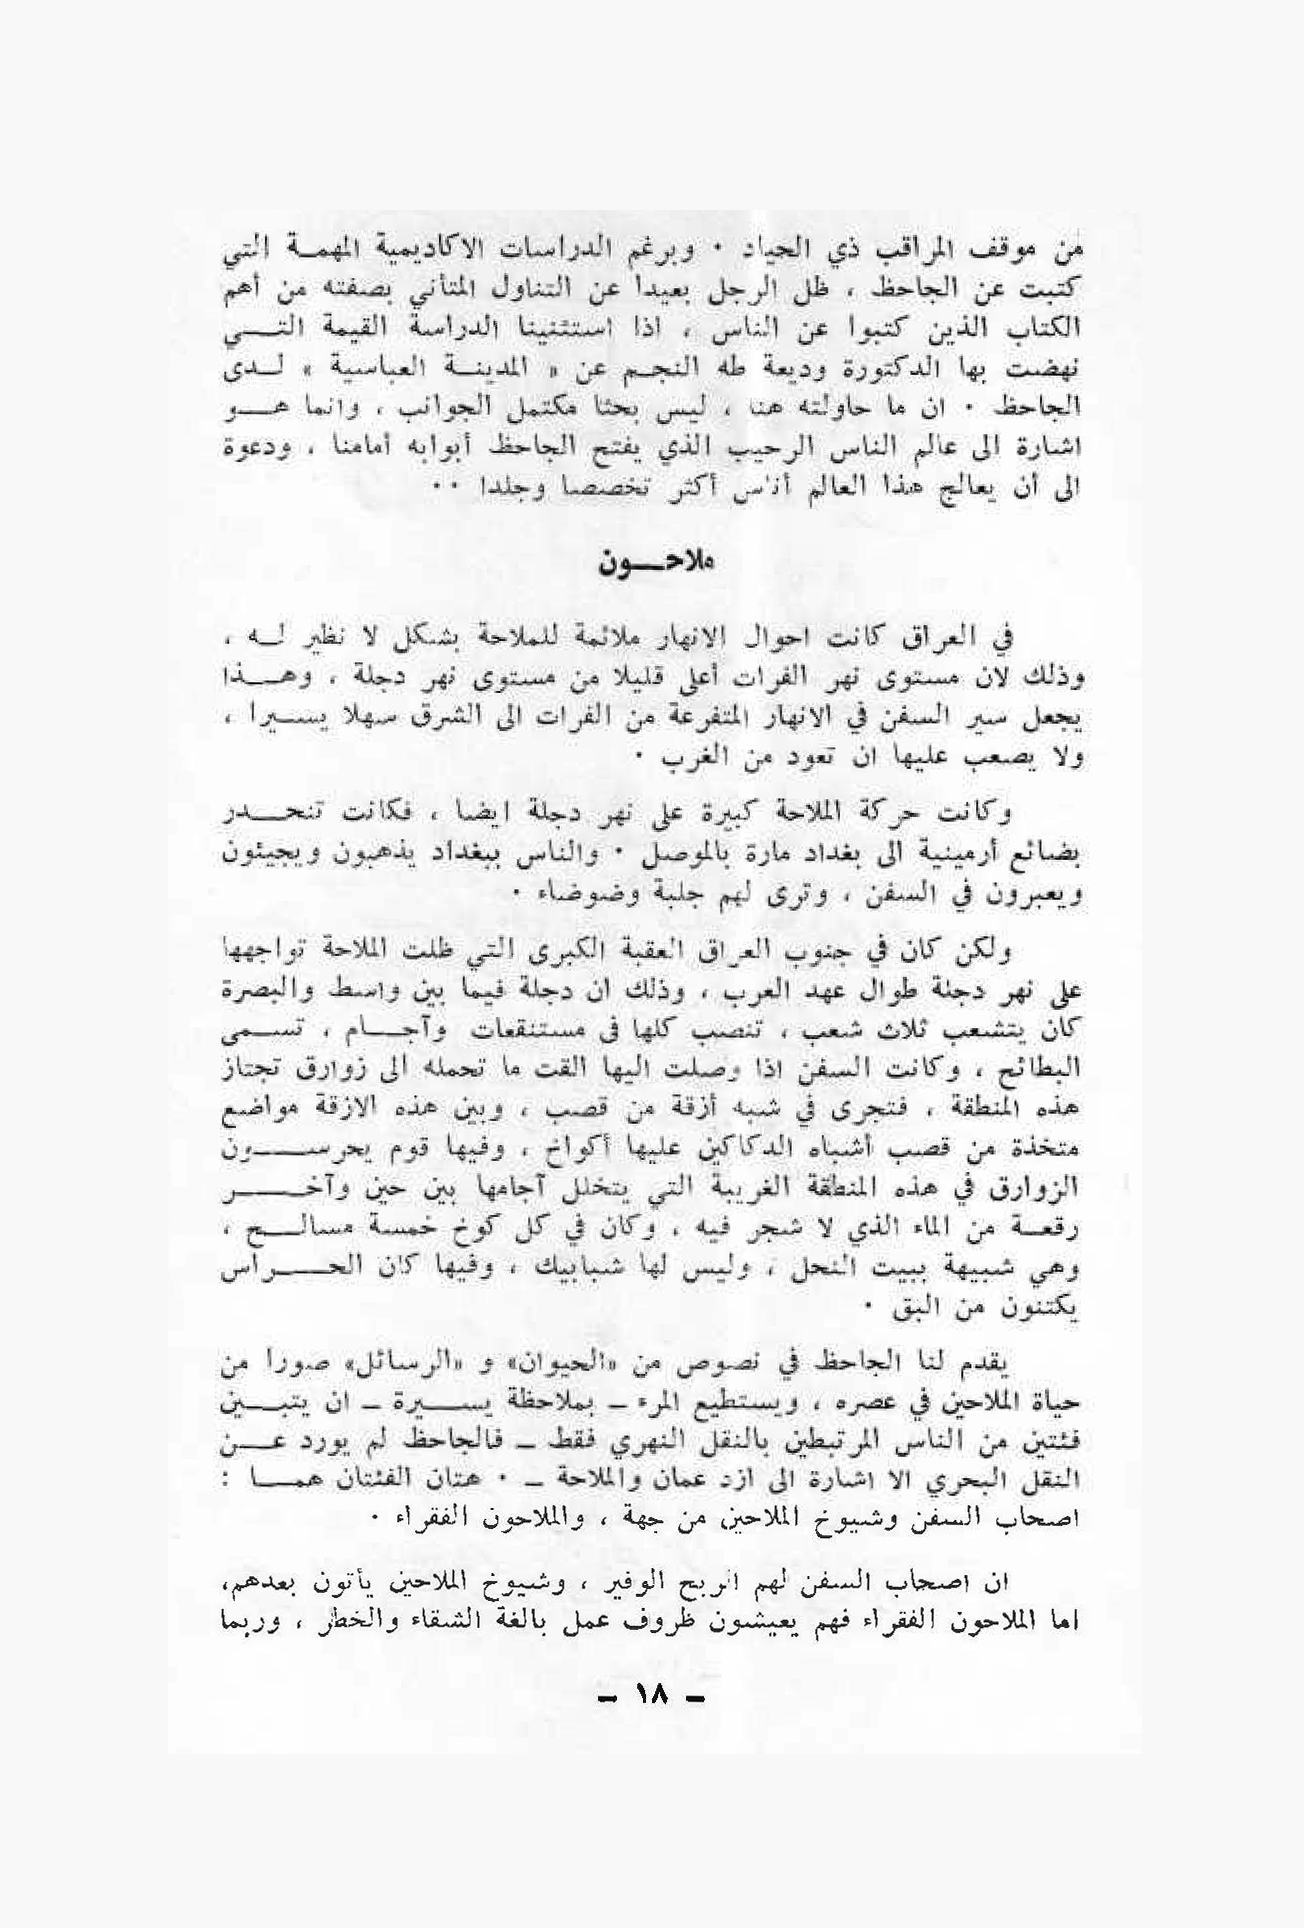 من موقف المراقب ذي الحياد . وبرغم الدراسات الاكاديمية المهمة التي
كتبت عن الجاحظ ، ظل الرجل بعيدا عن التناول المتأني بصفته من أهم
الكتاب الذين كتبوا عن الناس ، اذا استثنينا الدراسة القيمة التي
نهضت بها الدكتورة وديعة طه النجم عن « المدينة العباسية » لدى
الجاحظ . ان ما حاولته هنا ، ليس بحثا مكتمل الجوانب ، وانما هو
اشارة الى عالم الناس الرحيب الذي يفتح الجاحظ أبوابه أمامنا ، ودعوة
الى أن يعالج هذا العالم أناس أكثر تخصصا وجلدا . .
ملاحون
في العراق كانت احوال الانهار ملائمة للملاحة بشكل لا نظير له ،
وذلك لان مستوى نهر الفرات أعلى قليلا من مستوى نهر دجلة ، وهذا
يجعل سير السفن في الانهار المتفرعة من الفرات الى الشرق سهلا يسيرا ،
ولا يصعب عليها ان تعود من الغرب .
وكانت حركة الملاحة كبيرة على نهر دجلة ايضا ، فكانت تنحدر
بضائع أرمينية الى بغداد مارة بالموصل . والناس ببغداد يذهبون ويجيئون
ويعبرون في السفن ، وترى لهم جلبة وضوضاء .
ولكن كان في جنوب العراق العقبة الكبرى التي ظلت الملاحة تواجهها
على نهر دجلة طوال عهد العرب ، وذلك ان دجلة فيما بين واسط والبصرة
كان يتشعب ثلاث شعب ، تنصب كلها فى مستنقعات وآجام ، تسمى
البطائح ، وكانت السفن اذا وصلت اليها القت ما تحمله الى زوارق تجتاز
هذه المنطقة ، فتجرى في شبه أزقة من قصب ، وبين هذه الازقة مواضع
متخذة من قصب أشباه الدكاكين عليها أكواخ ، وفيها قوم يحرسون
الزوارق في هذه المنطقة الغريبة التي يتخلل آجامها بين حين وآخر
رقعة من الماء الذي لا شجر فيه ، وكان في كل كوخ خمسة مسالح ،
وهي شبيهة ببيت النحل ، وليس لها شبابيك ، وفيها كان الحراس
يكتنون من البق .
يقدم لنا الجاحظ في نصوص من «الحيوان» و «الرسائل» صورا من
حياة الملاحين في عصره ، ويستطيع المرء ـ بملاحظة يسيرة ـ ان يتبين
فئتين من الناس المرتبطين بالنقل النهري فقط ـ فالجاحظ لم يورد عن
النقل البحري الا اشارة الى ازد عمان والملاحة ـ . هتان الفئتان هما :
اصحاب السفن وشيوخ الملاحين من جهة ، والملاحون الفقراء .
ان اصحاب السفن لهم الربح الوفير ، وشيوخ الملاحين يأتون بعدهم،
اما الملاحون الفقراء فهم يعيشون ظروف عمل بالغة الشقاء والخطر ، وربما
ـ ١٨ ـ